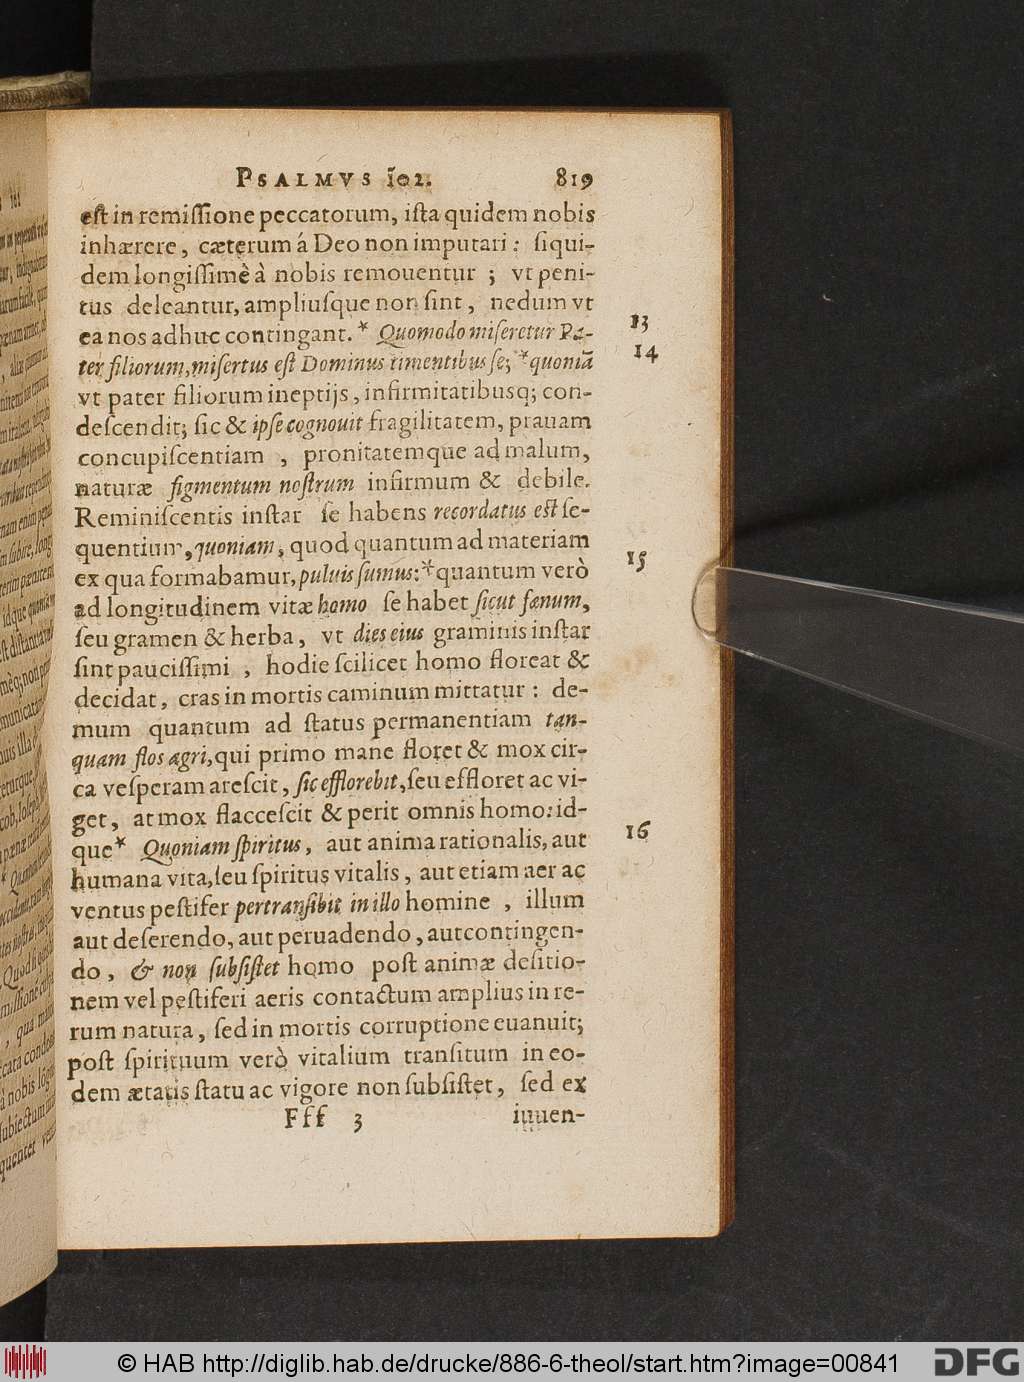 PSALMVS 102. 819
est in remissione peccatorum, ista quidem nobis
inhærere, cæterum á Deo non imputari: siqui-
dem longissimè à nobis remouentur; vt peni-
tus deleantur, ampliusque non sint, nedum vt
ea nos adhuc contingant.* Quomodo miseretur Pa- 13
ter filiorum, misertus est Dominus timentibus se; *quoniā 14
vt pater filiorum ineptijs, infirmitatibusq; con-
descendit; sic & ipse cognouit fragilitatem, prauam
concupiscentiam, pronitatemque ad malum,
naturæ figmentum nostrum infirmum & debile.
Reminiscentis instar se habens recordatus est se-
quentium, quoniam, quod quantum ad materiam
ex qua formabamur, puluis sumus:* quantum verò 15
ad longitudinem vitæ homo se habet sicut fœnum,
seu gramen & herba, vt dies eius graminis instar
sint paucissimi, hodie scilicet homo floreat &
decidat, cras in mortis caminum mittatur: de-
mum quantum ad status permanentiam tan-
quam flos agri, qui primo mane floret & mox cir-
ca vesperam arescit, sic efflorebit, seu effloret ac vi-
get, at mox flaccescit & perit omnis homo: id-
que* Quoniam spiritus, aut anima rationalis, aut 16
humana vita, seu spiritus vitalis, aut etiam aer ac
ventus pestifer pertransibit in illo homine, illum
aut deserendo, aut peruadendo, aut contingen-
do, & non subsistet homo post animæ desitio-
nem vel pestiferi aeris contactum amplius in re-
rum natura, sed in mortis corruptione euanuit;
post spirituum verò vitalium transitum in eo-
dem ætatis statu ac vigore non subsistet, sed ex
Fff 3 iuuen-
© HAB http://diglib.hab.de/drucke/886-6-theol/start.htm?image=00841 DFG